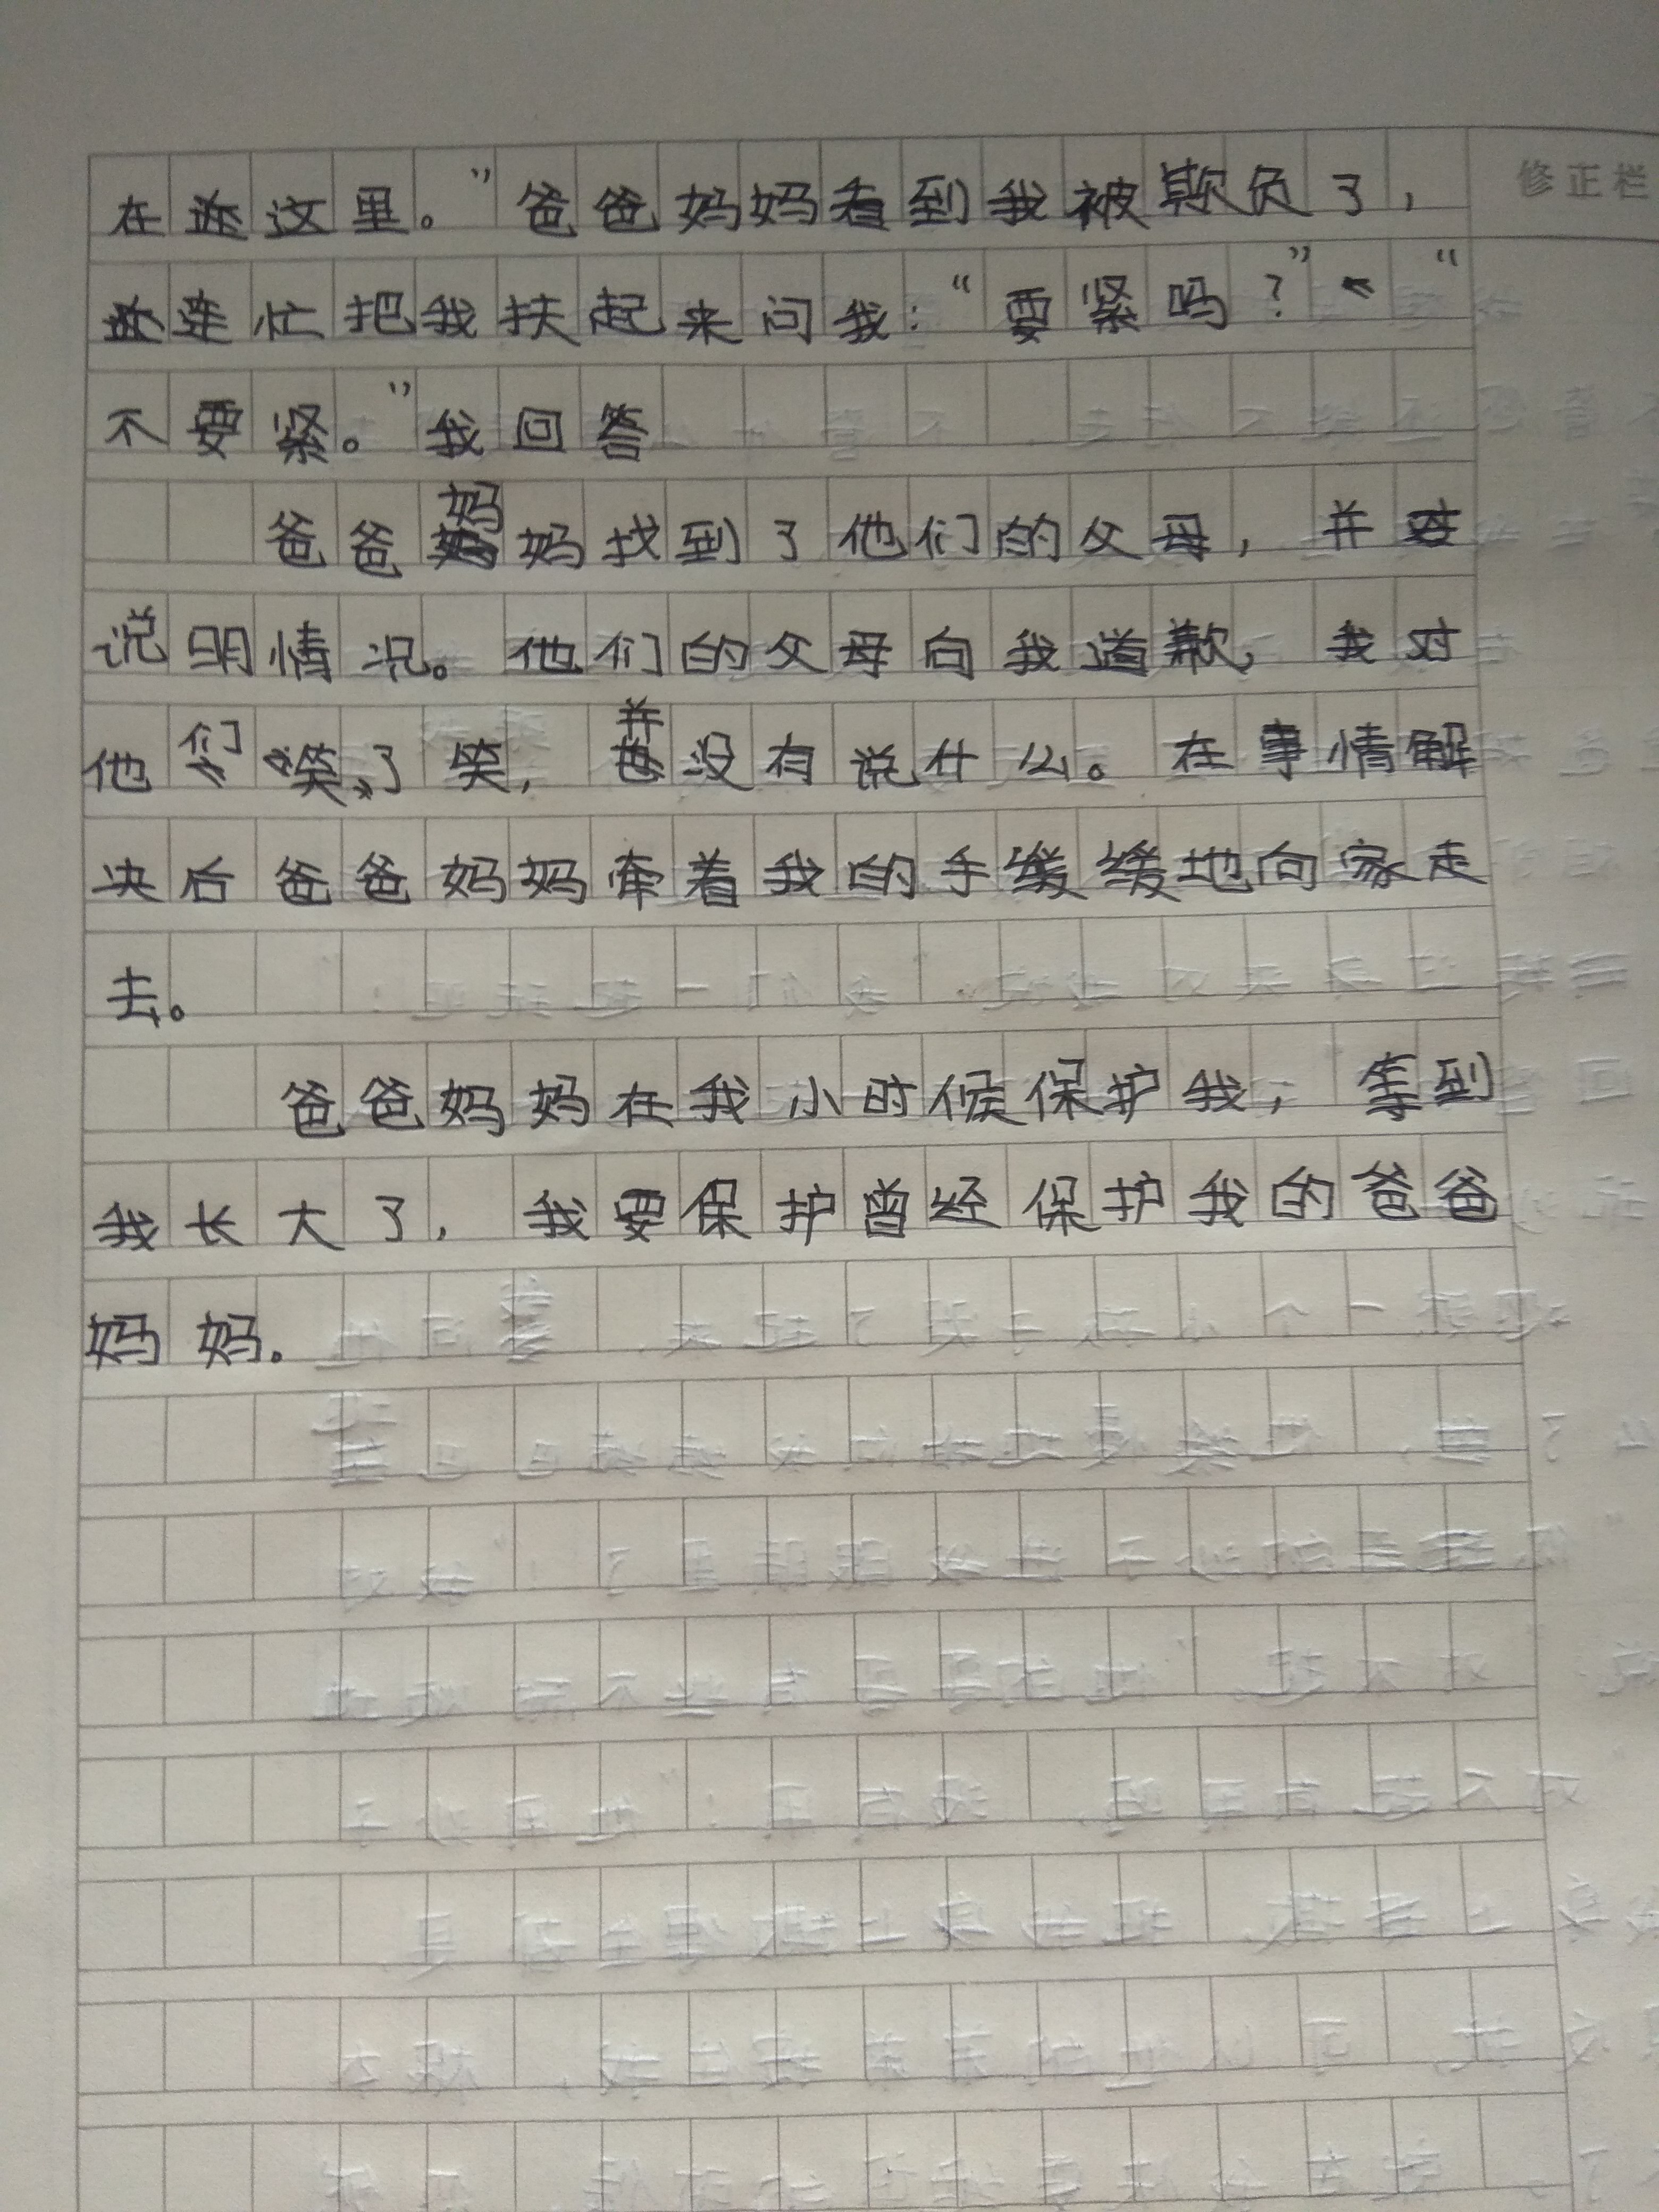 在这里。”爸爸妈妈看到我被欺负了，
修正栏
连忙把我扶起来问我：“要紧吗？”“
不要紧。”我回答
爸爸妈妈找到了他们的父母，并
说明情况。他们的父母向我道歉，我对
他们笑了笑，并没有说什么。在事情解
决后爸爸妈妈牵着我的手缓缓地向家走
去。
爸爸妈妈在我小时候保护我，等到
我长大了，我要保护曾经保护我的爸爸
妈妈。